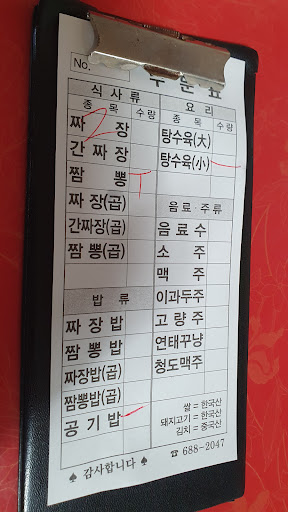 No.
주문표
식사류 요리
종목 수량 종목 수량
짜장 탕수육(大)
간짜장 탕수육(小)
짬뽕
짜장(곱) 음료 주류
간짜장(곱) 음료수
짬뽕(곱) 소주
맥주
밥류 이과두주
짜장밥 고량주
짬뽕밥 연태꾸냥
짜장밥(곱) 청도맥주
짬뽕밥(곱) 쌀 = 한국산
돼지고기 = 한국산
공기밥 김치 = 중국산
♠ 감사합니다 ♠ ☎ 688-2047